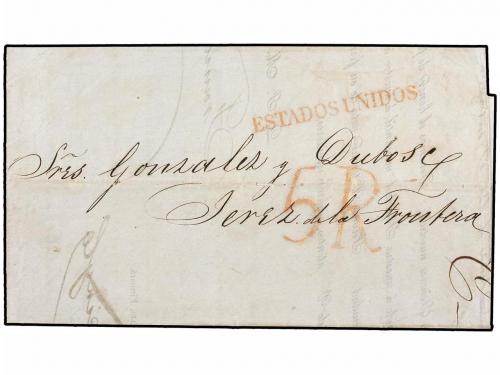 ESTADOS UNIDOS
Sres. Gonzalez y Dubosc
5R
Jérez de la Frontera